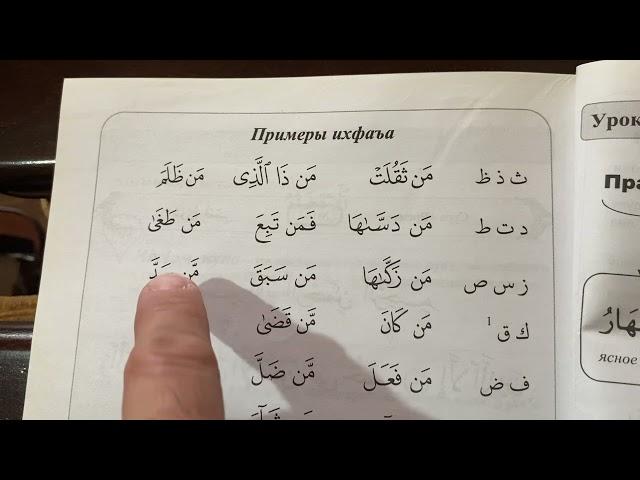 Примеры ихфаъа
ث ذ ظ مَن ثَقُلَتْ مَن ذَا ٱلَّذِى مَن ظَلَمَ
د ت ط مَن دَسَّىٰهَا فَمَن تَبِعَ مَن طَغَىٰ
ز س ص مَن زَكَّىٰهَا مَن سَبَقَ مَّن
ك ق ¹ مَن كَانَ مَّن قَضَىٰ
ف ض مَن فَعَلَ مَّن ضَلَّ
Урок
ясное